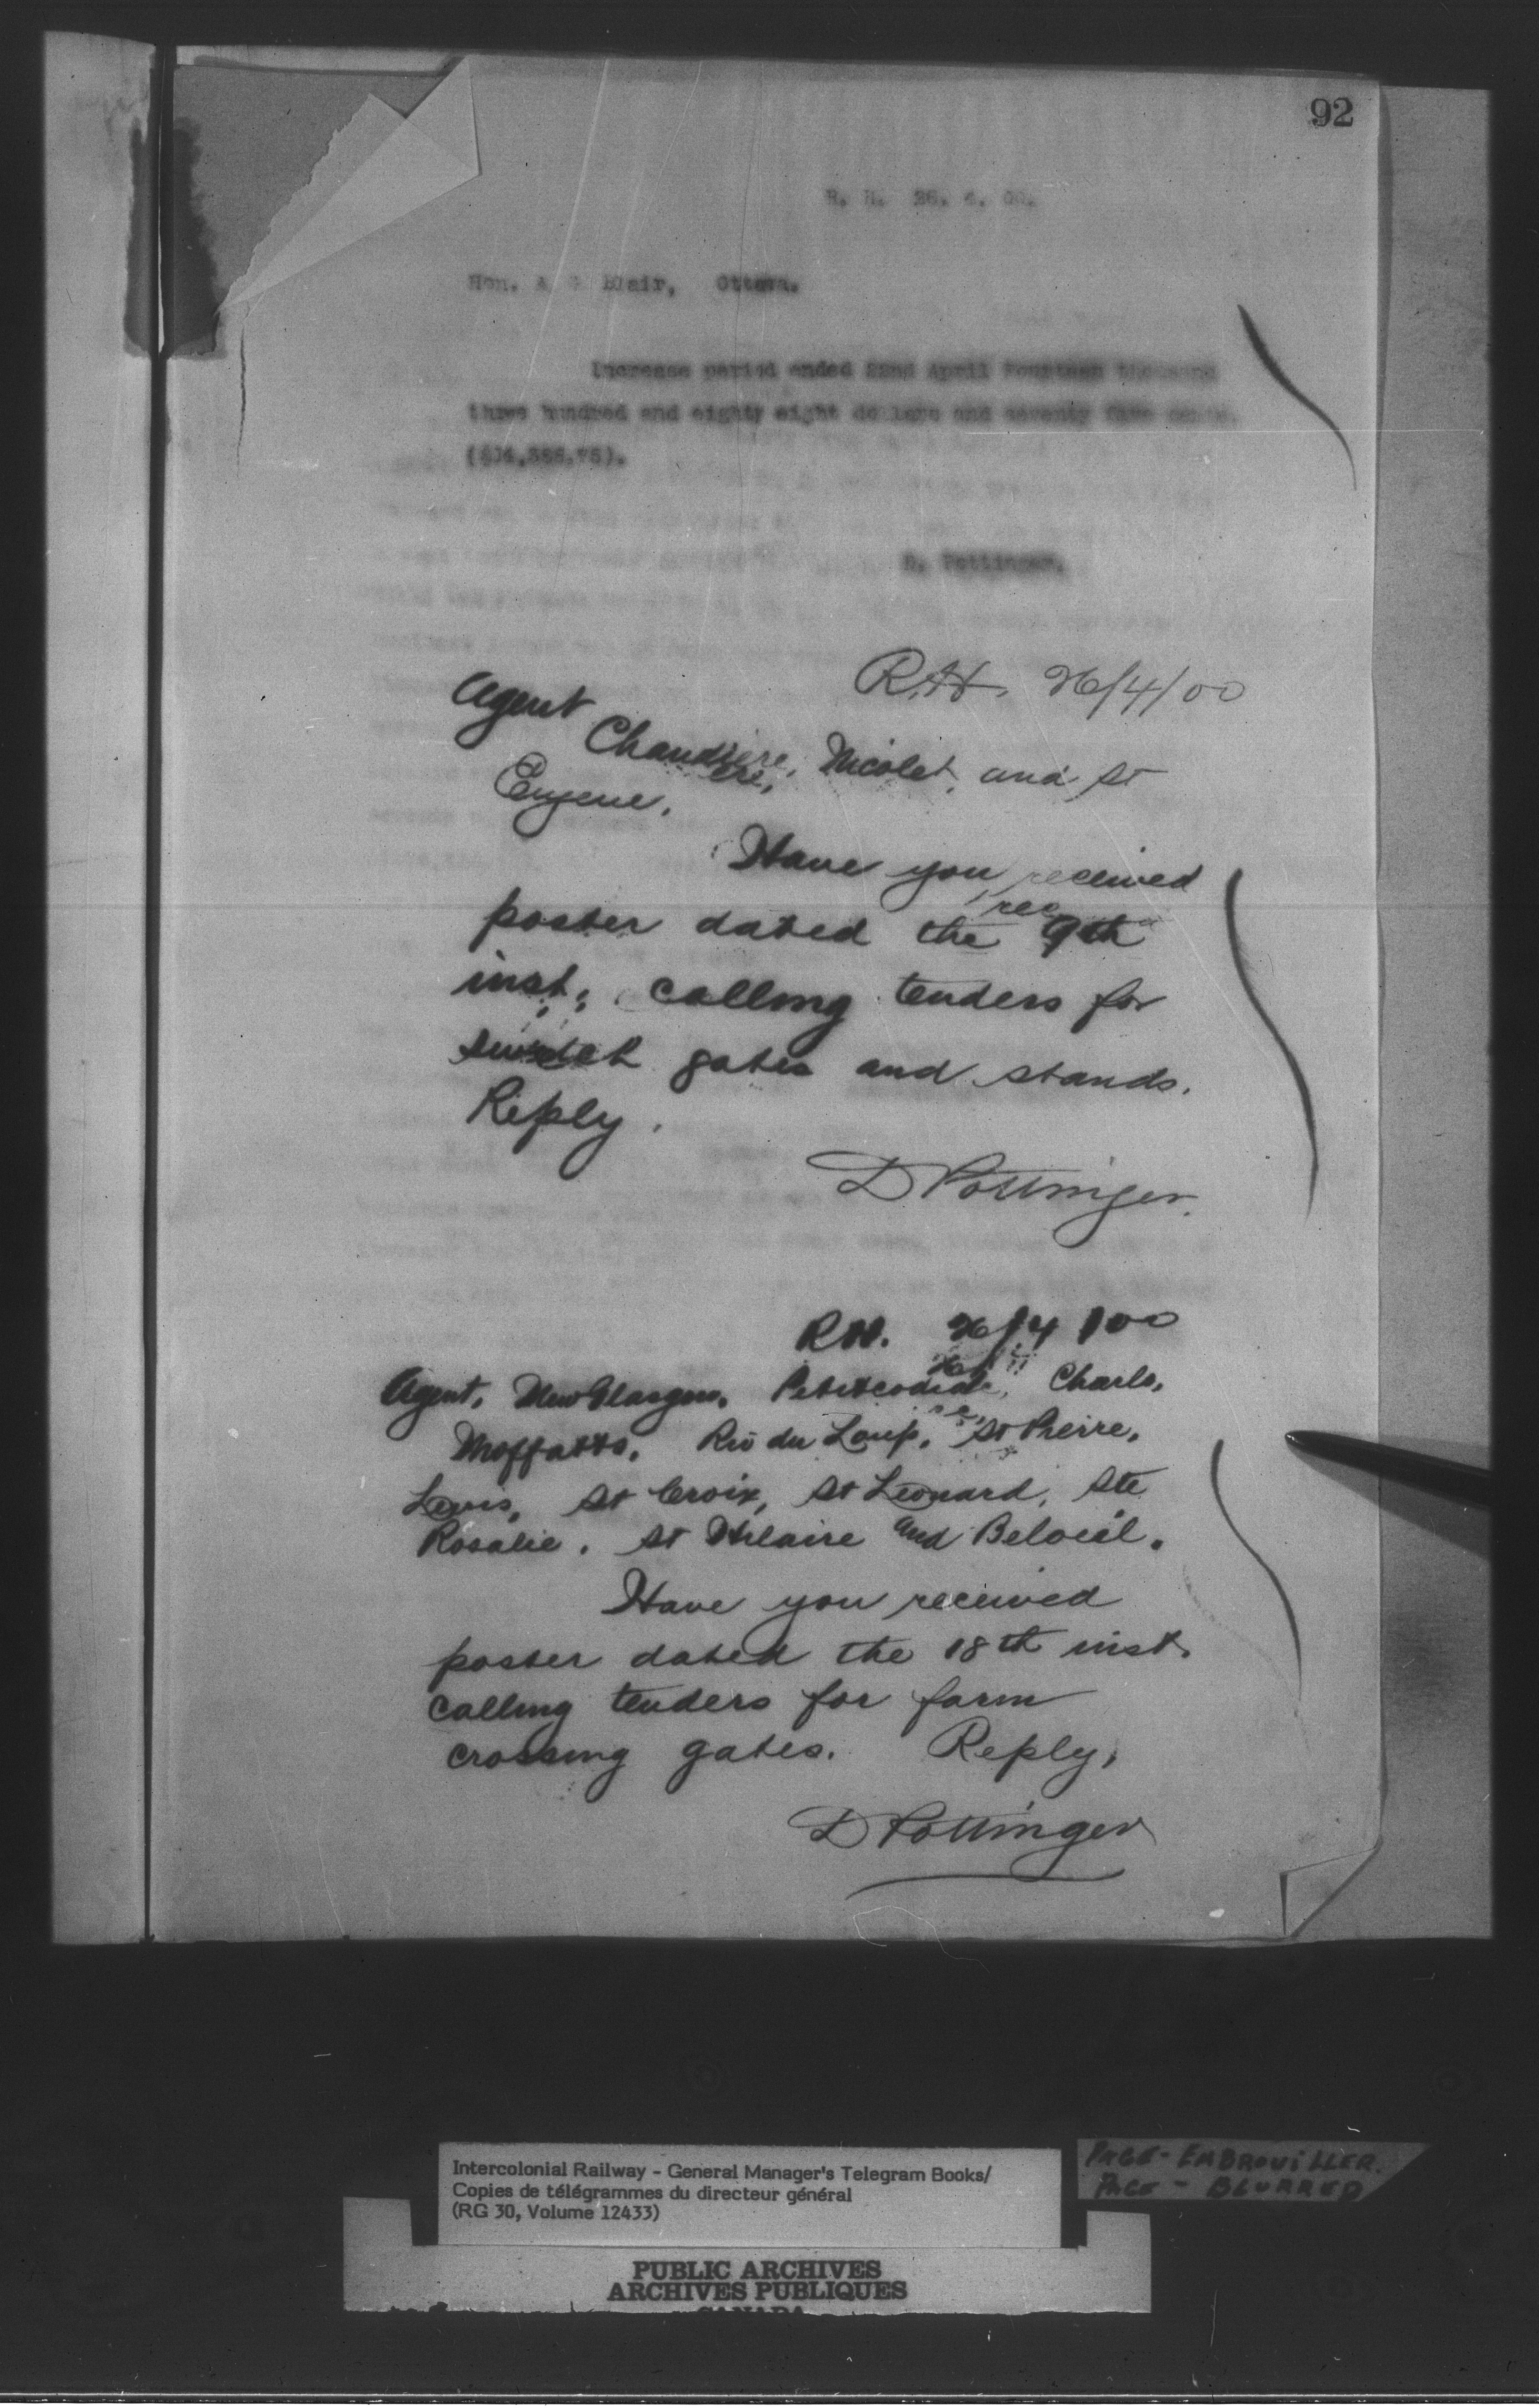 92
R. H. 26. 4. 00.
Hon. A G Blair, Ottawa.
Increase period ended 22nd April Fourteen thousand
three hundred and eighty eight dollars and seventy five cents.
($14,388.75).
D. Pottinger.
R.H. 26/4/00
Agent
Chaudiere, Nicolet, and St
Eugene.
Have you received
poster dated the 9th
inst, calling tenders for
switch gates and stands.
Reply.
D Pottinger.
RH. 26/4/00
Agent, New Glasgow, Petitcodiac, Charlo,
Moffatts, Riv du Loup, St Pierre,
Levis, St Croix, St Leonard, Ste
Rosalie, St Hilaire and Beloeil.
Have you received
poster dated the 18th inst.
calling tenders for farm
crossing gates. Reply,
D Pottinger
Intercolonial Railway - General Manager's Telegram Books/
Copies de télégrammes du directeur général
(RG 30, Volume 12433)
PAGE - EMBROUILLER.
PAGE - BLURRED
PUBLIC ARCHIVES
ARCHIVES PUBLIQUES
CANADA